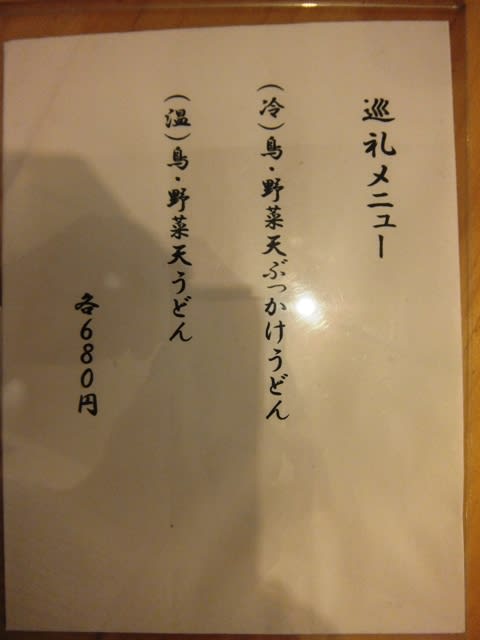 巡礼メニュー
（冷）鳥・野菜天ぶっかけうどん
（温）鳥・野菜天うどん
各680円